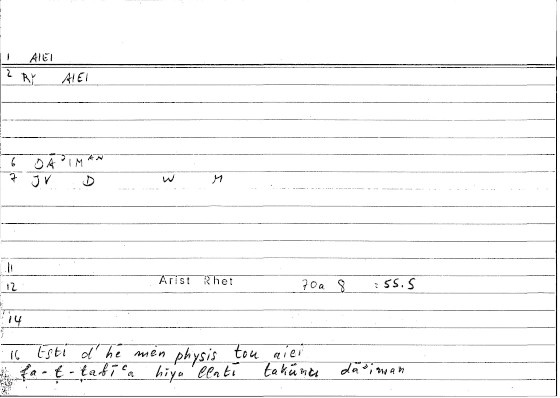 1 AIEI
2 RY AIEI
6 DĀʾIMᴬᴺ
7 JV D W M
11
12 Arist Rhet 70a 8 :55.5
14
16 Esti d' hē mèn physis tou aiei
fa-ṭ-ṭabīʿa hiya llatī takūnu dāʾiman